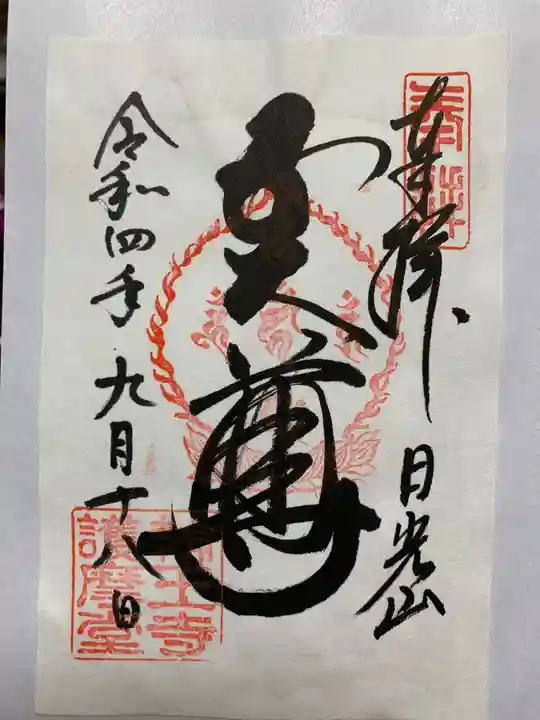 奉拝
奉拝 日光山
五大尊
令和四年九月十八日
輪王寺
護摩堂